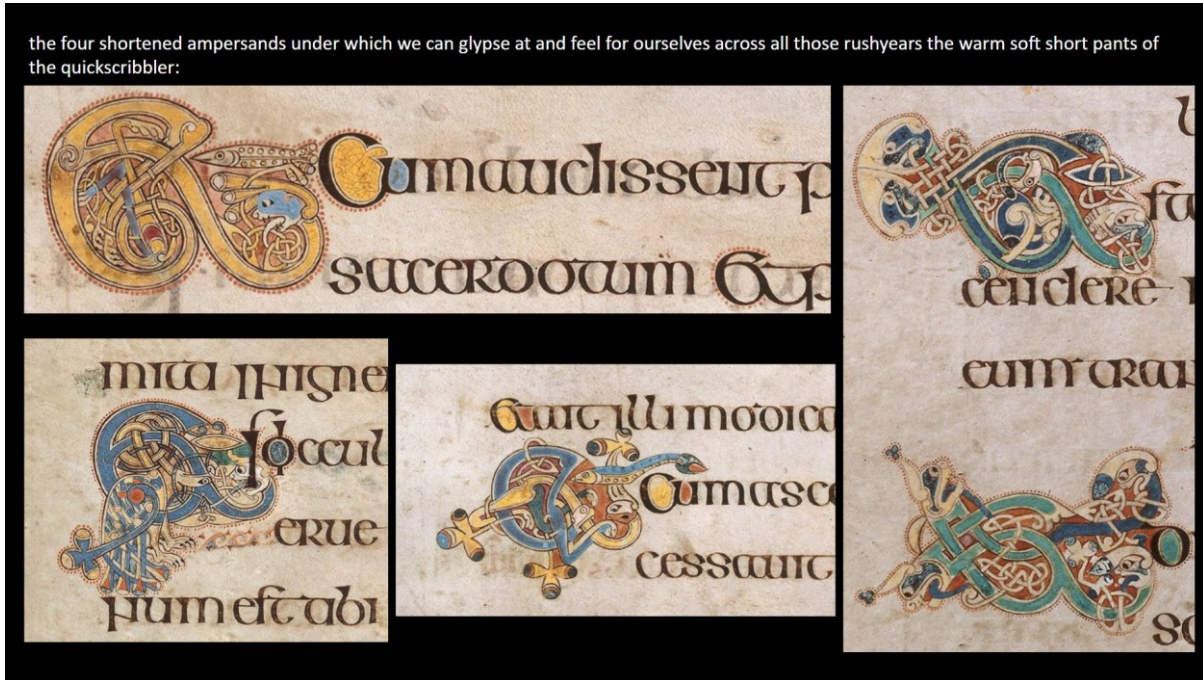 the four shortened ampersands under which we can glypse at and feel for ourselves across all those rushyears the warm soft short pants of
the quickscribbler:
Cum audissent p
sacerdotum Et p
cendere
eum tran
mita in igne
si occul
erue
num est tibi
Ait illi modica
Cum asce
cessauit